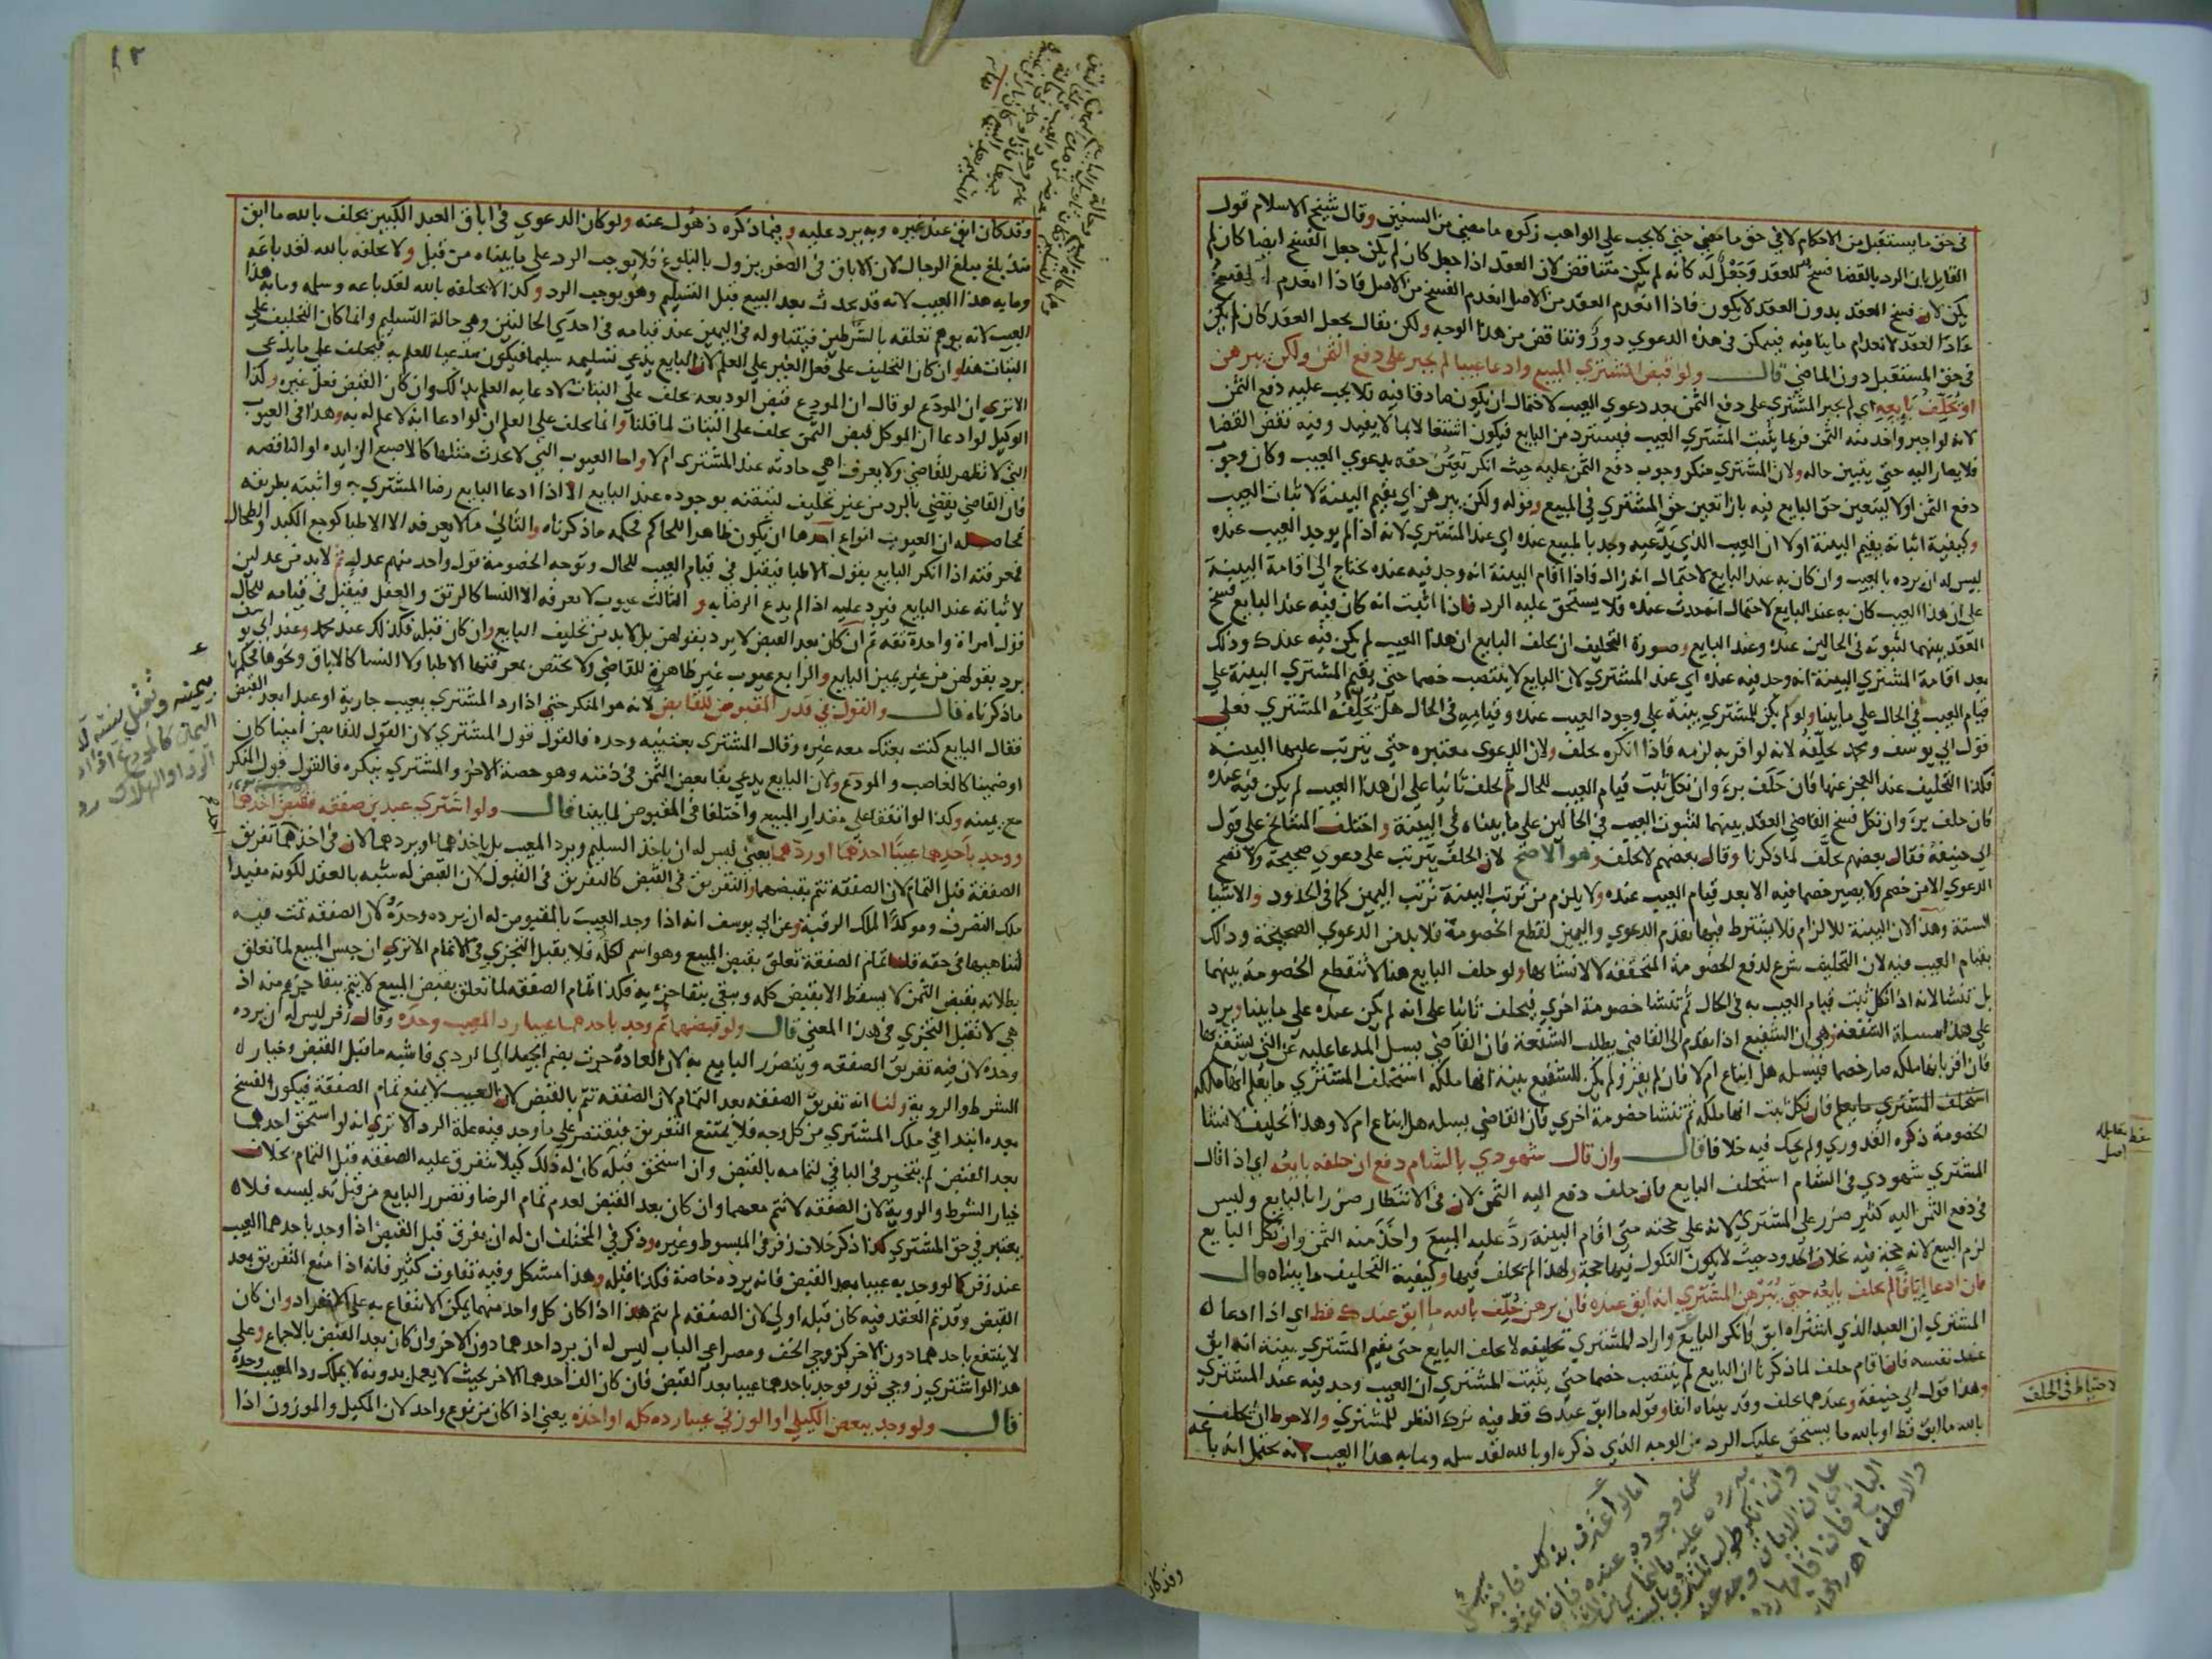 في حق ما يستقبل من الاحكام لا في حق ما مضي حتي لا يجب علي الواهب زكوه ما مضي من السنين وقال شيخ الاسلام قول
القايل بان الرد بالقضا فسخ للعقد وجعل له كانه لم يكن متناقض لان العقد اذا جعل كان لم يكن جعل الفسخ ايضا كان لم
يكن لان فسخ العقد بدون العقد لا يكون فاذا انعدم العقد من الاصل انعدم الفسخ من الاصل فاذا انعدم الفسخ
عاد العقد لانعدام ما ينافيه فيمكن في هذه الدعوي دور وتناقض من هذا الوجه ولكن يقال يجعل العقد كان لم يكن
في حق المستقبل دون الماضي قال ولو قبض المشتري المبيع وادعا عيبا لم يجبر علي دفع الثمن ولكن يبرهن
او يحلف بايعه اي لم يجبر المشتري علي دفع الثمن بعد دعوي العيب لاحتمال ان يكون صادقا فيه فلا يجب عليه دفع الثمن
لانه لو اجبر واخذ منه الثمن فربما يثبت المشتري العيب فيسترد من البايع فيكون اشتغالا بما لا يفيد وفيه نقض القضا
فلا يصار اليه حتي يتبين حاله ولان المشتري منكر وجوب دفع الثمن عليه حيث انكر تعين حقه بدعوي العيب وكان وجوب
دفع الثمن اولا ليتعين حق البايع فيه بازا تعين حق المشتري في المبيع وقوله ولكن يبرهن اي يقيم البينة لاثبات العيب
وكيفية اثباته يقيم البينة اولا ان العيب الذي يدعيه وجد بالمبيع عنده اي عند المشتري لانه اذا لم يوجد العيب عنده
ليس له ان يرده بالعيب وان كان به عند البايع لاحتمال انه زال فاذا اقام البينة انه وجد فيه عنده يحتاج الي اقامة البينة
علي ان هذا العيب كان به عند البايع لاحتمال انه حدث عنده فلا يستحق عليه الرد فاذا اثبت انه كان فيه عند البايع فسخ
العقد بينهما لثبوته في الحالين عنده وعند البايع وصورة التحليف ان يحلف البايع ان هذا العيب لم يكن فيه عندك وذلك
بعد اقامة المشتري البينة انه وجد فيه عنده اي عند المشتري لان البايع لا ينتصب خصما حتي يقيم المشتري البينة علي
قيام العيب في الحال علي ما بينا ولو لم يكن للمشتري بينة علي وجود العيب عنده وقيامه في الحال هل يحلفه المشتري فعلي
قول ابي يوسف ومحمد يحلفه لانه لو اقر به لزمه فاذا انكره يحلف ولان الدعوي معتبره حتي يترتب عليها البينه
فكذا التحليف عند العجز عنها فان حلف بري وان نكل ثبت قيام العيب للحال ثم يحلف ثانيا علي ان هذا العيب لم يكن فيه عنده
فان حلف بري وان نكل فسخ القاضي العقد بينهما لثبوت العيب في الحالين علي ما بيناه في البينة واختلف المشايخ علي قول
ابي حنيفة فقال بعضهم يحلف لما ذكرنا وقال بعضهم لا يحلف وهو الاصح لان الحلف يترتب علي دعوي صحيحة ولا تصح
الدعوي الا من خصم ولا يصير خصما فيه الا بعد قيام العيب عنده ولا يلزم من ترتب البينة ترتب اليمين كما في الحدود والاشيا
الستة وهذا لان البينة للالزام فلا يشترط فيها تقدم الدعوي واليمين لقطع الخصومة فلا بد من الدعوي الصحيحة وذلك
بقيام العيب فيه لان التحليف شرع لدفع الخصومة المتحققة لا لانشائها ولو حلف البايع هنا لا تنقطع الخصومة بينهما
بل تنشا لانه اذا نكل ثبت قيام العيب به في الحال ثم تنشا خصومة اخري فيحلف ثانيا علي انه لم يكن عنده علي ما بينا ويرد
علي هذا مسالة الشفعة وهي ان الشفيع اذا تقدم الي القاضي يطلب الشفعة فان القاضي يسل المدعا عليه عن التي يشفع بها
فان اقر بانها ملكه صار خصما فيسله هل ابتاع ام لا فان لم يقر ولم يكن للشفيع بينة انها ملكه استحلف المشتري ما يعلم انها ملكه
استحلف المشتري ما يعلم فان نكل ثبت انها ملكه ثم تنشا خصومة اخري فان القاضي يسله هل ابتاع ام لا وهذا تحليف لانشا
الخصومة ذكره القدوري ولم يحك فيه خلافا قال وان قال شهودي بالشام دفع ان حلف بايعه اي اذا قال
المشتري شهودي في الشام استحلف البايع فان حلف دفع اليه الثمن لان في الانتظار ضررا بالبايع وليس
في دفع الثمن اليه كثير ضرر علي المشتري لانه علي حجته متي اقام البينة رد عليه المبيع واخذ منه الثمن وان نكل البايع
لزم البيع لانه حجة فيه بخلاف الحدود حيث لا يكون النكول فيها حجة ولهذا لم يحلف فيها وكيفية التحليف ما بيناه قال
فان ادعا اباقا لم يحلف بايعه حتي يبرهن المشتري انه ابق عنده فان برهن حلف بالله ما ابق عندك قط اي اذا ادعا
المشتري ان العبد الذي اشتراه ابق فانكر البايع واراد المشتري تحليفه لا يحلف البايع حتي يقيم المشتري بينة انه ابق
عند نفسه فاذا قام حلف لما ذكرنا ان البايع لم ينتصب خصما حتي يثبت المشتري ان العيب وجد فيه عند المشتري
وهذا قول ابي حنيفه وعندهما يحلف وقد بيناه انفا وقوله ما ابق عندك قط فيه ترك النظر للمشتري والاحوط ان يحلف
بالله ما ابق قط او بالله ما يستحق عليك الرد من الوجه الذي ذكره او بالله لقد سلمه وما به هذا العيب لانه يحتمل انه باعه
لاحتياط في الحلف
وقد كان
وقد كان ابق عند غيره وبه يرد عليه وفيما ذكره ذهول عنه ولو كان الدعوي في اباق العبد الكبير يحلف بالله ما ابق
منذ بلغ مبلغ الرجال لان الاباق في الصغر يزول بالبلوغ فلا يوجب الرد علي ما بيناه من قبل ولا يحلفه بالله لقد باعه
وما به هذا العيب لانه قد يحدث بعد البيع قبل التسليم وهو يوجب الرد وكذا لا يحلفه بالله لقد باعه وسلمه وما به هذا
العيب لانه يوهم تعلقه بالشرطين فيتناوله في اليمين عند قيامه في احدي الحالتين وهي حالة التسليم وانما كان التحليف علي
البتات هنا وان كان التحليف علي فعل الغير علي العلم لان البايع يدعي تسليمه سليما فيكون مدعيا للعلم به فيحلف علي ما يدعي
الا تري ان المودع لو قال ان المودع قبض الوديعه يحلف علي البتات لادعايه العلم بذلك وان كان القبض فعل غيره وكذا
الوكيل لو ادعا ان الموكل قبض الثمن يحلف علي البتات لما قلنا وانما يحلف علي العلم ان لو ادعا انه لا علم له به وهذا في العيوب
التي لا تظهر للقاضي ولا يعرف اهي حادثه عند المشتري ام لا واما العيوب التي لا تحدث مثلها كالاصبع الزايده او الناقصه
فان القاضي يقضي بالرد من غير تحليف لتيقنه بوجوده عند البايع الا اذا ادعا البايع رضا المشتري به واثبته بطريقه
فحاصله ان العيوب انواع احدها ان يكون ظاهرا للحاكم فحكمه ما ذكرناه والثاني ما لا يعرفه الا الاطبا كوجع الكبد والطحال
فمعرفته اذا انكر البايع بقول الاطبا فيقبل في قيام العيب للحال وتوجه الخصومة قول واحد منهم عدل ثم لا بد من عدلين
لاثباته عند البايع فيرد عليه اذا لم يدع الرضا به والثالث عيوب لا يعرفه الا النسا كالرتق والعفل فيقبل في قيامه للحال
قول امراة واحدة ثقه ثم ان كان بعد القبض لا يرد بقولهن بل لا بد من تحليف البايع وان كان قبله فكذلك عند محمد وعند ابي يوسف
يرد بقولهن من غير يمين البايع والرابع عيوب غير ظاهرة للقاضي ولا تختص بمعرفتها الاطبا ولا النسا كالاباق ونحوها فحكمها
ما ذكرناه قال والقول في قدر المقبوض للقابض لانه هو المنكر حتي اذا رد المشتري بعيب جارية او عبدا بعد القبض
فقال البايع كنت بعتك معه غيره وقال المشتري بعتنيه وحده فالقول قول المشتري لان القول للقابض امينا كان
او ضمينا كالغاصب والمودع ولان البايع يدعي بقا بعض الثمن في ذمته وهو حصة الاخر والمشتري ينكره فالقول قول المنكر
مع يمينه وكذا لو اتفقا علي مقدار المبيع واختلفا في المقبوض لما بينا قال ولو اشتري عبدين صفقه فقبض احدهما
ووجد باحدهما عيبا اخذهما او ردهما يعني ليس له ان ياخذ السليم ويرد المعيب بل ياخذهما او يردهما لان في اخذهما تفريق
الصفقة قبل التمام لان الصفقة تتم بقبضهما والتفريق في القبض كالتفريق في القبول لان القبض له شبه بالعقد لكونه مفيدا
ملك التصرف وموكدا لملك الرقبة وعن ابي يوسف انه اذا وجد العيب بالمقبوض له ان يرده وحده لان الصفقه تمت فيه
لتناهيها في حقه قلنا تمام الصفقة تعلق بقبض المبيع وهو اسم لكله فلا يقبل التجزي في الاتمام الا تري ان حبس المبيع لما تعلق
بطلانه بقبض الثمن لا يسقط الا بقبض كله ويبقي ببقا جزء منه فكذا تمام الصفقه لما تعلق بقبض المبيع لا يتم ببقا جزء منه اذ
هي لا تقبل التجزي في هذا المعني قال ولو قبضهما ثم وجد باحدهما عيبا رد المعيب وحده وقال زفر ليس له ان يرده
وحده لان فيه تفريق الصفقه ويتضرر البايع به لان العادة جرت بضم الجيد الي الردي فاشبه ما قبل القبض وخيار
الشرط والروية ولنا انه تفريق الصفقه بعد التمام لان الصفقه تتم بالقبض لان العيب لا يمنع تمام الصفقة فيكون الفسخ
بعده ابتدا في ملك المشتري من كل وجه فلا يمتنع التفريق فيقتصر علي ما وجد فيه علة الرد الا تري انه لو استحق احدهما
بعد القبض لم يتخير في الباقي لتمامه بالقبض وان استحق قبله كان له ذلك كيلا يتفرق عليه الصفقه قبل التمام بخلاف
خيار الشرط والروية لان الصفقه لا تتم معهما وان كان بعد القبض لعدم تمام الرضا وتضرر البايع من قبل تدليسه فلا
يعتبر في حق المشتري كذا ذكر خلاف زفر في المبسوط وغيره وذكر في المختلف ان له ان يفرق قبل القبض اذا وجد باحدهما العيب
عند زفر كما لو وجد به عيبا بعد القبض فانه يرده خاصة فكذا قبله وهذا مشكل وفيه تفاوت كثير فانه اذا منع التفريق بعد
القبض وقد تم العقد فيه كان قبله اولي لان الصفقه لم تتم هذا اذا كان كل واحد منهما يمكن الانتفاع به علي الانفراد وان كان
لا ينتفع باحدهما دون الاخر كزوجي الخف ومصراعي الباب ليس له ان يرد احدهما دون الاخر وان كان بعد القبض بالاجماع وعلي
هذا لو اشتري زوجي ثور فوجد باحدهما عيبا بعد القبض فان كان الف احدهما الاخر بحيث لا يعمل بدونه لا يملك رد المعيب وحده
قال ولو وجد ببعض الكيلي او الوزني عيبا رده كله او اخذه يعني اذا كان من نوع واحد لان المكيل والموزون اذا